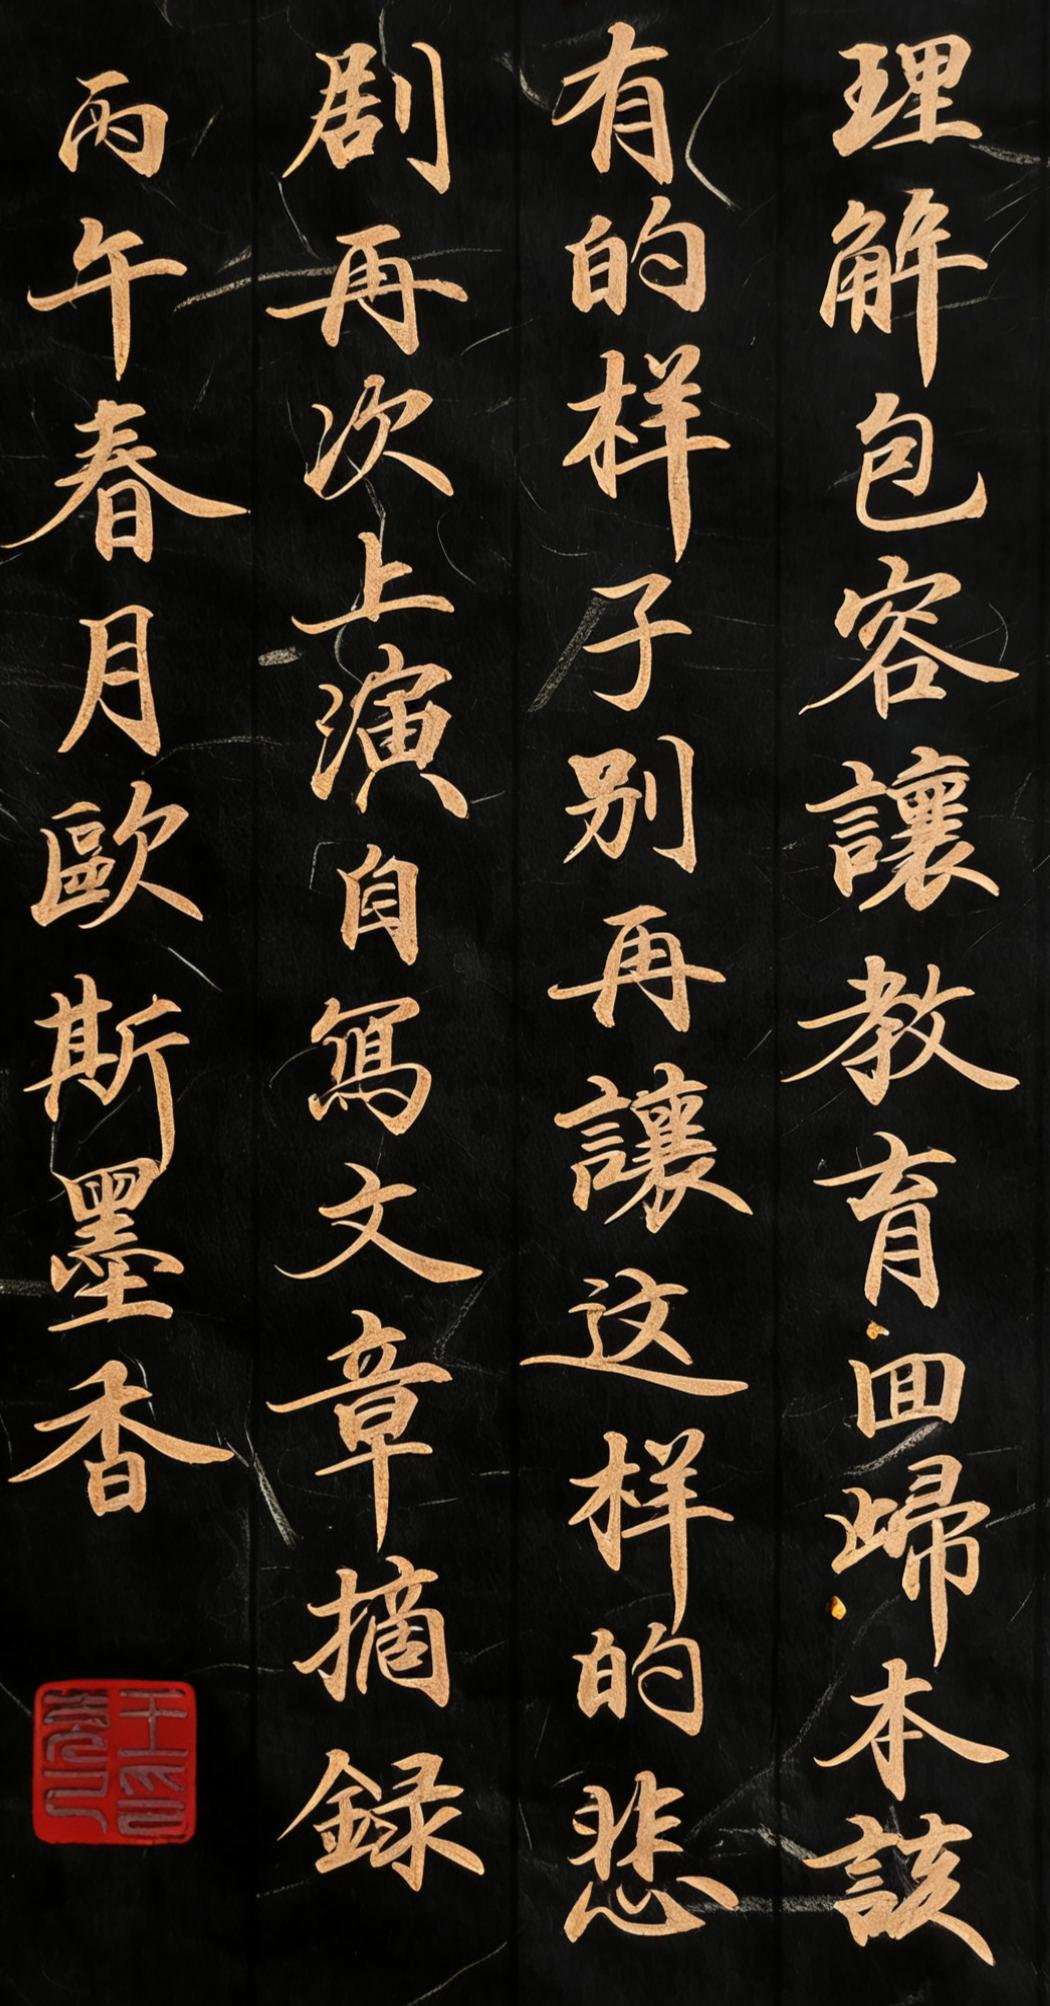 理解包容讓教育回歸本該
有的样子别再讓这样的悲
剧再次上演自寫文章摘録
丙午春月歐斯墨香